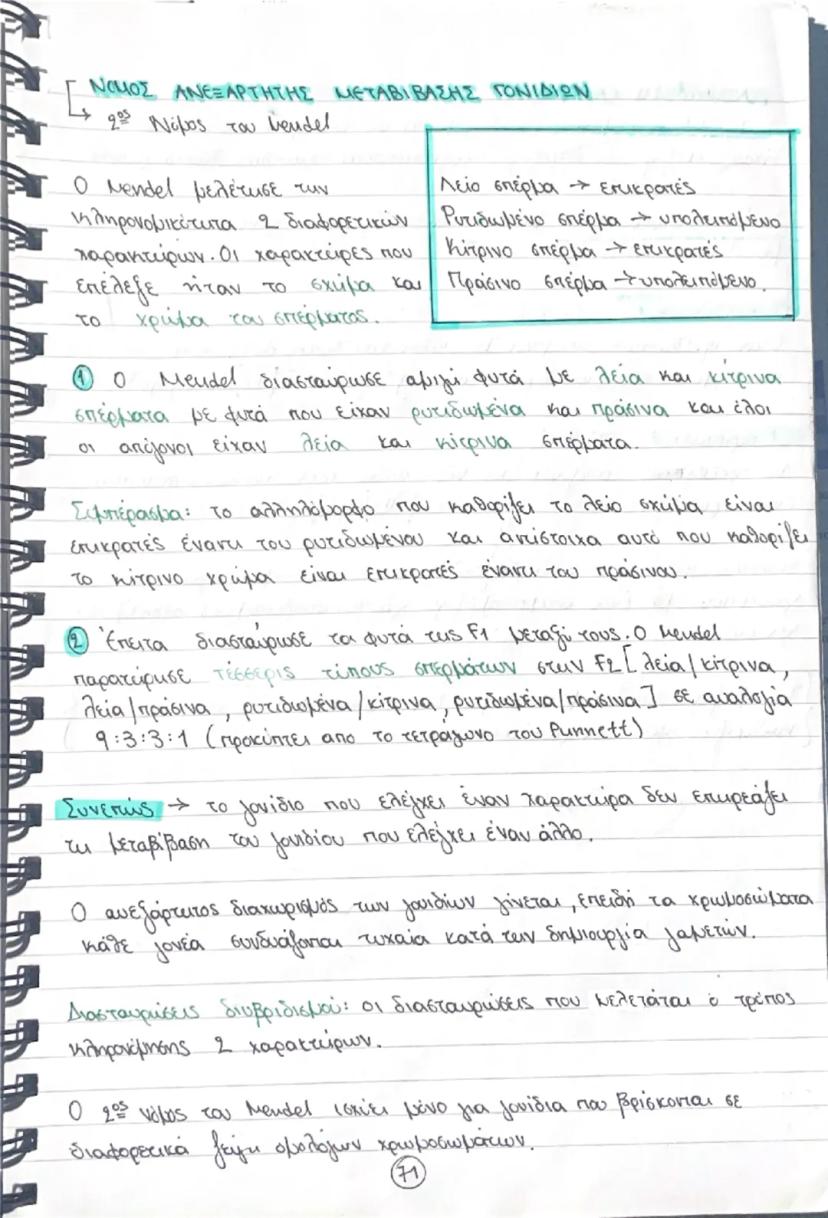 ΝΟΜΟΣ ΑΝΕΞΑΡΤΗΤΗΣ ΜΕΤΑΒΙΒΑΣΗΣ ΓΟΝΙΔΙΩΝ
→ 2ος Νόμος του Mendel
Ο Mendel μελέτησε την
κληρονομικότητα 2 διαφορετικών
χαρακτήρων. Οι χαρακτήρες που
επέλεξε ήταν το σχήμα και
το χρώμα του σπέρματος.
Λείο σπέρμα → επικρατές
Ρυτιδωμένο σπέρμα → υπολειπόμενο
Κίτρινο σπέρμα → επικρατές
Πράσινο σπέρμα → υπολειπόμενο.
① Ο Mendel διασταύρωσε αμιγή φυτά με λεία και κίτρινα
σπέρματα με φυτά που είχαν ρυτιδωμένα και πράσινα και όλοι
οι απόγονοι είχαν λεία και κίτρινα σπέρματα.
Συμπέρασμα: το αλληλόμορφο που καθορίζει το λείο σχήμα είναι
επικρατές έναντι του ρυτιδωμένου και αντίστοιχα αυτό που καθορίζει
το κίτρινο χρώμα είναι επικρατές έναντι του πράσινου.
② Έπειτα διασταύρωσε τα φυτά της F1 μεταξύ τους. Ο Mendel
παρατήρησε τέσσερις τύπους σπερμάτων στην F2 [λεία/κίτρινα,
λεία/πράσινα, ρυτιδωμένα/κίτρινα, ρυτιδωμένα/πράσινα] σε αναλογία
9:3:3:1 (προκύπτει απο το τετράγωνο του Punnett)
Συνεπώς → το γονίδιο που ελέγχει έναν χαρακτήρα δεν επηρεάζει
τη μεταβίβαση του γονιδίου που ελέγχει έναν άλλο.
Ο ανεξάρτητος διαχωρισμός των γονιδίων γίνεται, επειδή τα χρωμοσώματα
κάθε γονέα συνδυάζονται τυχαία κατά την δημιουργία γαμετών.
Διασταυρώσεις διυβριδισμού: οι διασταυρώσεις που μελετάται ο τρόπος
κληρονόμησης 2 χαρακτήρων.
Ο 2ος νόμος του Mendel ισχύει μόνο για γονίδια που βρίσκονται σε
διαφορετικά ζεύγη ομολόγων χρωμοσωμάτων.
71